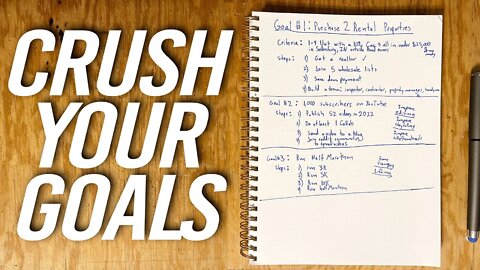 CRUSH
YOUR
GOALS
Goal #1: Purchase 2 Rental Properties
Criteria: 1-4 Unit with a 10% CoC & all in under
in Salisbury, MD outside flood zones
Steps: 1) Get a realtor
2) Join 5 wholesale lists
3) Save down payment
4) Build a team: inspector, contractor, property manager, handyman
Goal #2: 1,000 subscribers on YouTube
Steps: 1) Publish 52 videos in 2022
2) Do at least 1 Collab
3) Send
Improve
editing
Improve
storytelling
Improve
Goal #3: Run Half Marathon
Steps: 1) run 3K
2) Run 5K
3) Run 10K
4) Run half Marathon